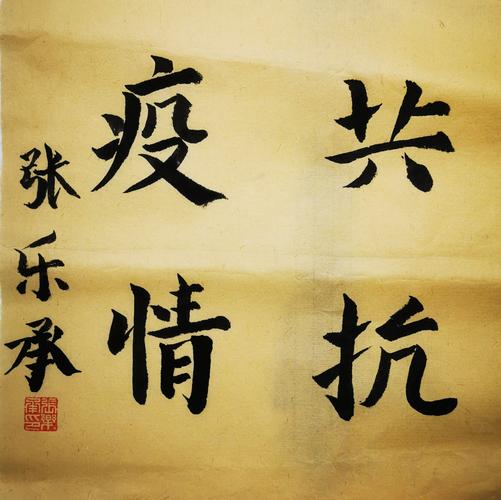 共抗
疫情
张乐承